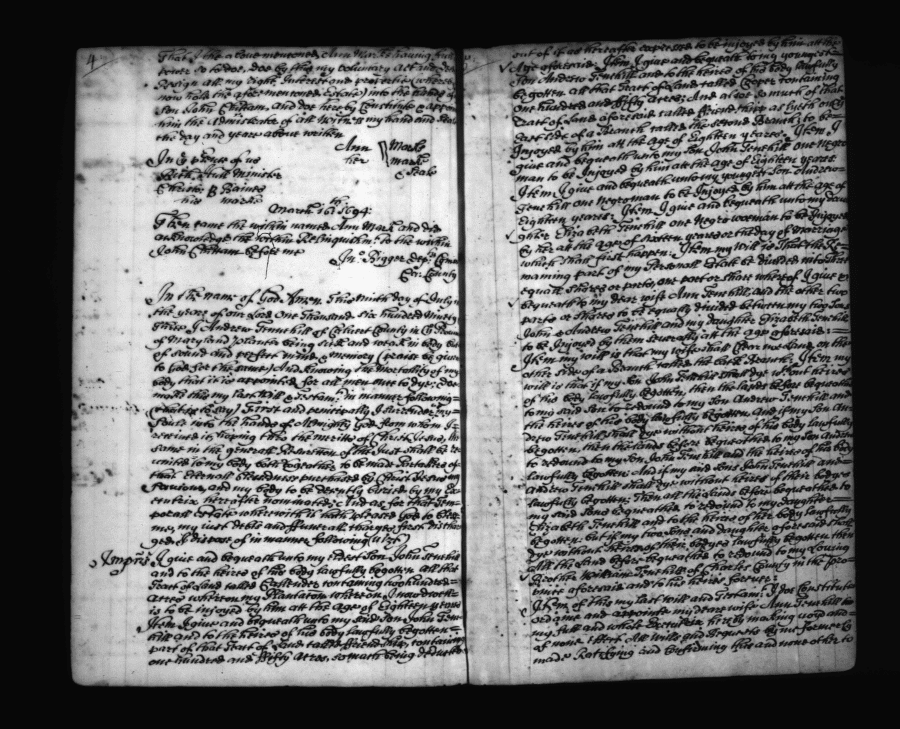 4
That I the above mentioned Ann Marks having full
power so to doe, doe by this my voluntary Act
Resign all my right, Interest and propertie
now hold the afore mentioned Estate into the hands of
son John Chittam, and doe hereby Constitute &
him the Administrator of all Witness my hand and Seale
the day and yeare above written
Ann Marks
her marke
Seale
In presence of us
Hull Minister
Baines
his marke
March 1694
Then came the within named Ann Mark and did
acknowledge the within to the within
John Chittam before me
Jno Bigger
County
In the name of God Amen. This Ninth day of July in
the yeare of our Lord One Thousand six hundred Ninety
three I Andrew Tennehill of Calvert County in
of Maryland Planter being sick and weak in body but
of sound and perfect mind & memory (praise be given
to God for the same) And knowing the mortality of my
body that it is appointed for all men once to dye; doe
make this my last will & Testamt. in manner following
(that is to say) First and principally I surrender my
Soule into the hands of Almighty God from whom I
received it, hoping thro the meritts of Christ Jesus,
same in the generall Resurrection of the Just shall be re
united to my body both together to be made Partakers of
that eternall purchased by Christ Jesus my
Saviour, and my body to be decently buried by my
hereafter nominated; And as for that Tem
porall Estate wherewith it hath pleased God to bless
me, my just debts and ffunerall charges first dischar
ged, I dispose of in manner following (vizt)
Imprs. I give and bequeath unto my Eldest Son John Tenehill
and to the heires of his body lawfully begotten all that
Tract of Land called containing two hundred
Acres whereon my Plantation whereon I now dwell
is to be Injoyed by him att the age of Eighteen yeares
Item I give and bequeath unto my said Son John Tene
hill and to the heires of his body lawfully begotten
part of that Tract of Land called Friendship, containing
one hundred and fifty Acres, so much being
out of it as hereafter expressed to be injoyed by him att the
Age aforesaid. Item I give and bequeath to my youngest
Son Andrew Tenehill and to the heires of his body lawfully
begotten all that Tract of Land called containing
one hundred and fifty Acres; And alsoe so much of that
Tract of Land aforesaid called Friendship as lyeth on the
side of a Branch called the second Branch to be
Injoyed by him att the age of Eighteen yeares. Item I
give and bequeath unto my Son John Tenehill one Negro
man to be Injoyed by him att the age of Eighteen yeares
Item I give and bequeath unto my youngest Son Andrew
Tenehill one Negro man to be Injoyed by him att the age of
Eighteen yeares. Item I give and bequeath unto my dau
ghter Elizabeth Tenehill one Negro woman to be Injoyed
by her att the age of Sixteen yeares or the day of Marriage
which shall first happen. Item my Will is That the Re
maining part of my Personall Estate be divided into three
equall Shares or parts, one part or share whereof I give &
bequeath to my dear wife Ann Tenehill, and the other two
parts or shares to be equally divided between my two Sons
John & Andrew Tenehill and my daughter Elizabeth Tenehill
to be Injoyed by them severally att the age aforesaid.
Item my will is that my wife shall on the
other side of a Branch called the Branch. Item my
will is that if my Son John Tenehill shall dye without heires
of his body lawfully begotten, then the lands before bequeathed
to my said Son to redound to my Son Andrew Tenehill and
the heires of his body lawfully begotten, and if my Son An
drew Tenehill shall dye without heires of his body lawfully
begotten, then the lands before bequeathed to my Son Andrew
to redound to my Son John Tenehill and the heires of his body
lawfully begotten. And if my said Sons John Tenehill and
Andrew Tenehill shall dye without heires of their bodyes
lawfully begotten; Then all the lands before bequeathed to
my said Sons bequeathed, to redound to my daughter
Elizabeth Tenehill and to the heires of her body lawfully
begotten; but if my two Sons and daughter aforesaid shall
dye without heires of their bodyes lawfully begotten then
all the lands before bequeathed to redound to my Loving
Brother William Tenehill of Charles County in the pro
vince aforesaid and to his heires forever.
Item of this my last will and Testamt. I doe Constitute
ordaine and appoint my deare wife Ann Tenehill to
my full and whole Executrix hereby making void and
of none Effect all Wills and Bequests by me formerly
made Ratifying and Confirming this and none other to